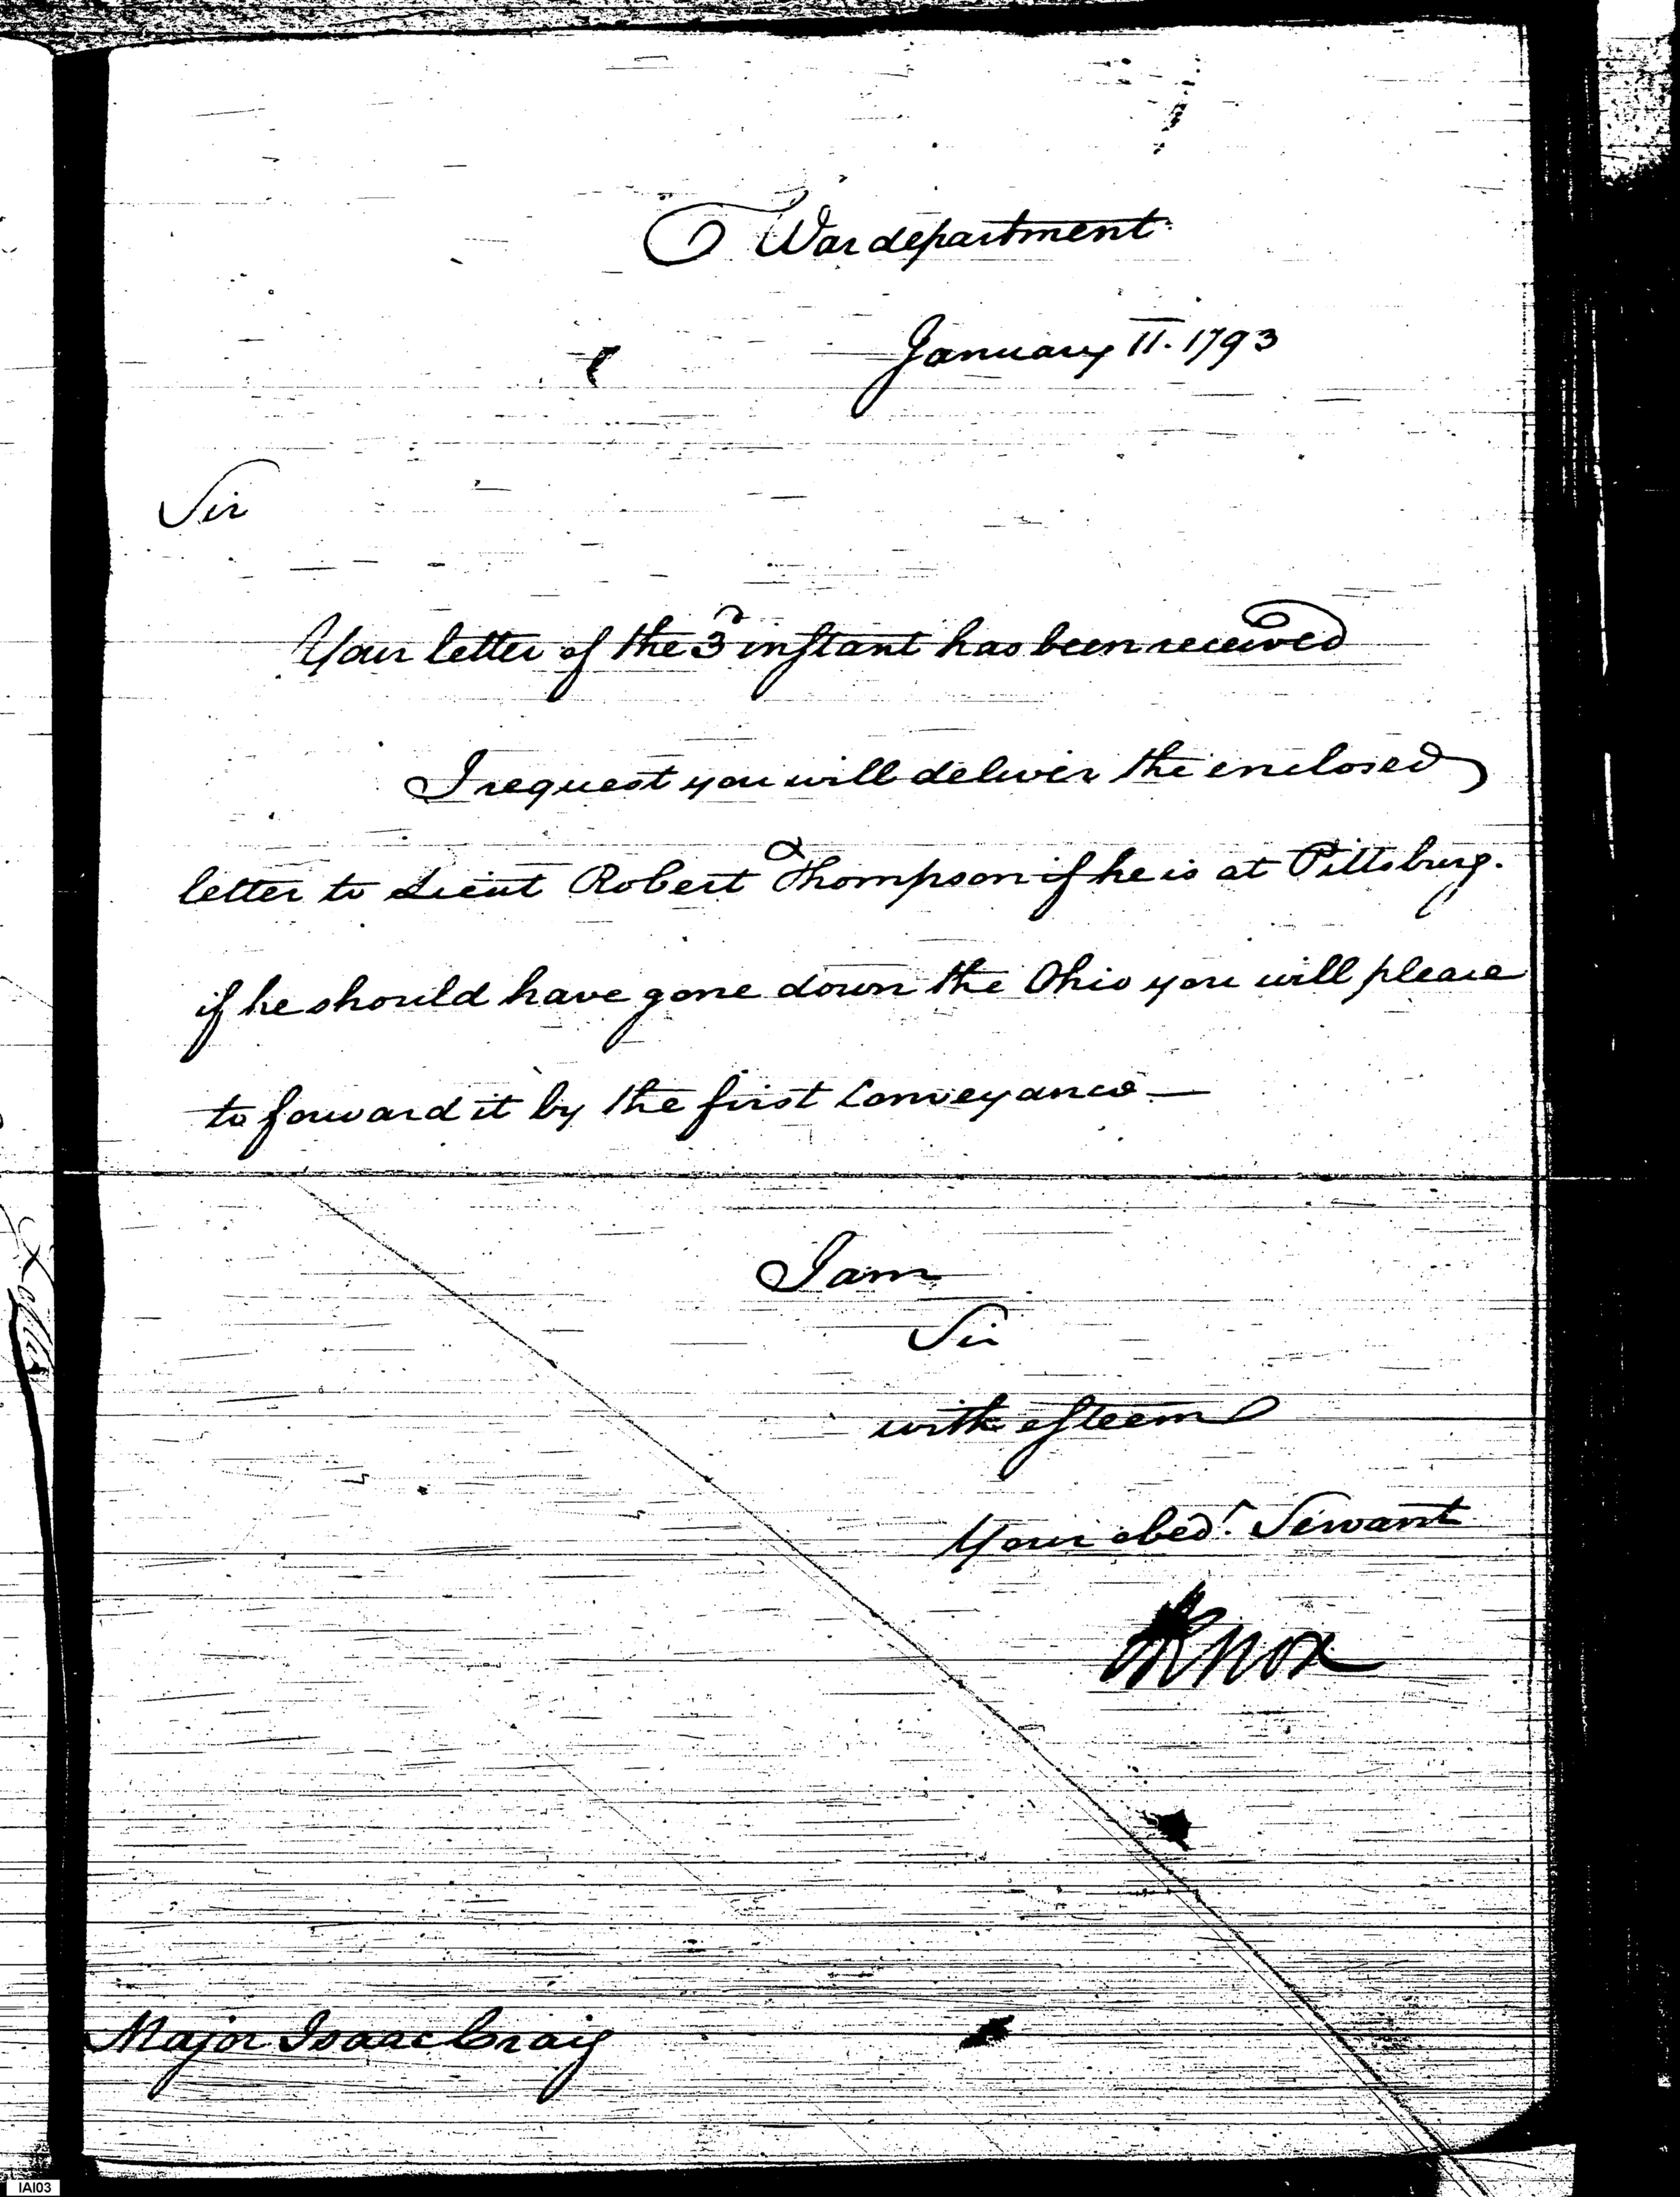 War department
January 11. 1793
Sir
Your letter of the 3d instant has been received
I request you will deliver the enclosed
letter to Lieut Robert Thompson if he is at Pittsburg.
if he should have gone down the Ohio you will please
to forward it by the first Conveyance —
I am
Sir
with esteem
Your obedt. Servant
HKnox
Major Isaac Craig
IAI03